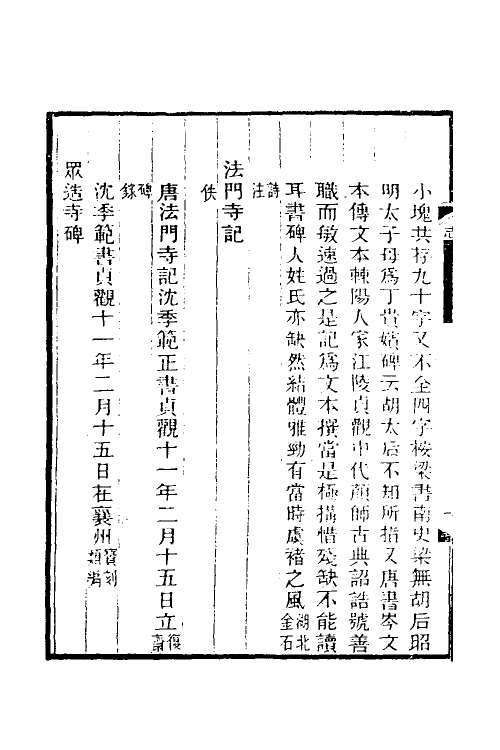 小塊共存九十字又不全四字桉梁書南史梁無胡后昭
明太子母爲丁貴嬪碑云胡太后不知所指又唐書岑文
本傳文本棘陽人家江陵貞觀中代顏師古典詔誥號善
職而敏速過之是記爲文本撰當是極搆惜殘缺不能讀
耳書碑人姓氏亦缺然結體雅勁有當時虞褚之風湖北金石
詩注
法門寺記
佚
唐法門寺記沈季範正書貞觀十一年二月十五日立復齋
碑錄
沈季範書貞觀十一年二月十五日在襄州寶刻類編
眾造寺碑